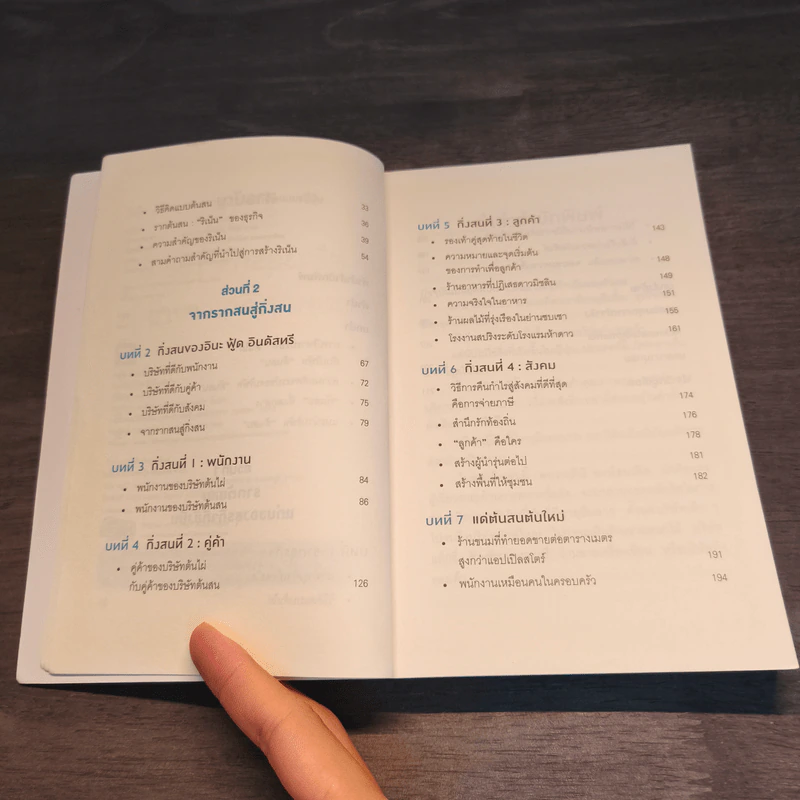 • วิธีคิดแบบต้นสน 33
• รากต้นสน : "ริเน็น" ของธุรกิจ 36
• ความสำคัญของริเน็น 39
• สามคำถามสำคัญที่นำไปสู่การสร้างริเน็น 54
ส่วนที่ 2
จากรากสนสู่กิ่งสน
บทที่ 2 กิ่งสนของอินะ ฟู้ด อินดัสทรี
• บริษัทที่ดีกับพนักงาน 67
• บริษัทที่ดีกับคู่ค้า 72
• บริษัทที่ดีกับสังคม 75
• จากรากสนสู่กิ่งสน 79
บทที่ 3 กิ่งสนที่ 1 : พนักงาน
• พนักงานของบริษัทต้นไผ่ 84
• พนักงานของบริษัทต้นสน 86
บทที่ 4 กิ่งสนที่ 2 : คู่ค้า
• คู่ค้าของบริษัทต้นไผ่
กับคู่ค้าของบริษัทต้นสน 126
บทที่ 5 กิ่งสนที่ 3 : ลูกค้า
• รองเท้าคู่สุดท้ายในชีวิต 143
• ความหมายและจุดเริ่มต้น
ของการทำเพื่อลูกค้า 148
• ร้านอาหารที่ปฏิเสธดาวมิชลิน 149
• ความจริงใจในอาหาร 151
• ร้านผลไม้ที่รุ่งเรืองในย่านซบเซา 155
• โรงงานสปริงระดับโรงแรมห้าดาว 161
บทที่ 6 กิ่งสนที่ 4 : สังคม
• วิธีการคืนกำไรสู่สังคมที่ดีที่สุด
คือการจ่ายภาษี 174
• สำนึกรักท้องถิ่น 176
• "ลูกค้า" คือใคร 178
• สร้างผู้นำรุ่นต่อไป 181
• สร้างพื้นที่ให้ชุมชน 182
บทที่ 7 แด่ต้นสนต้นใหม่
• ร้านขนมที่ทำยอดขายต่อตารางเมตร
สูงกว่าแอปเปิลสโตร์ 191
• พนักงานเหมือนคนในครอบครัว 194